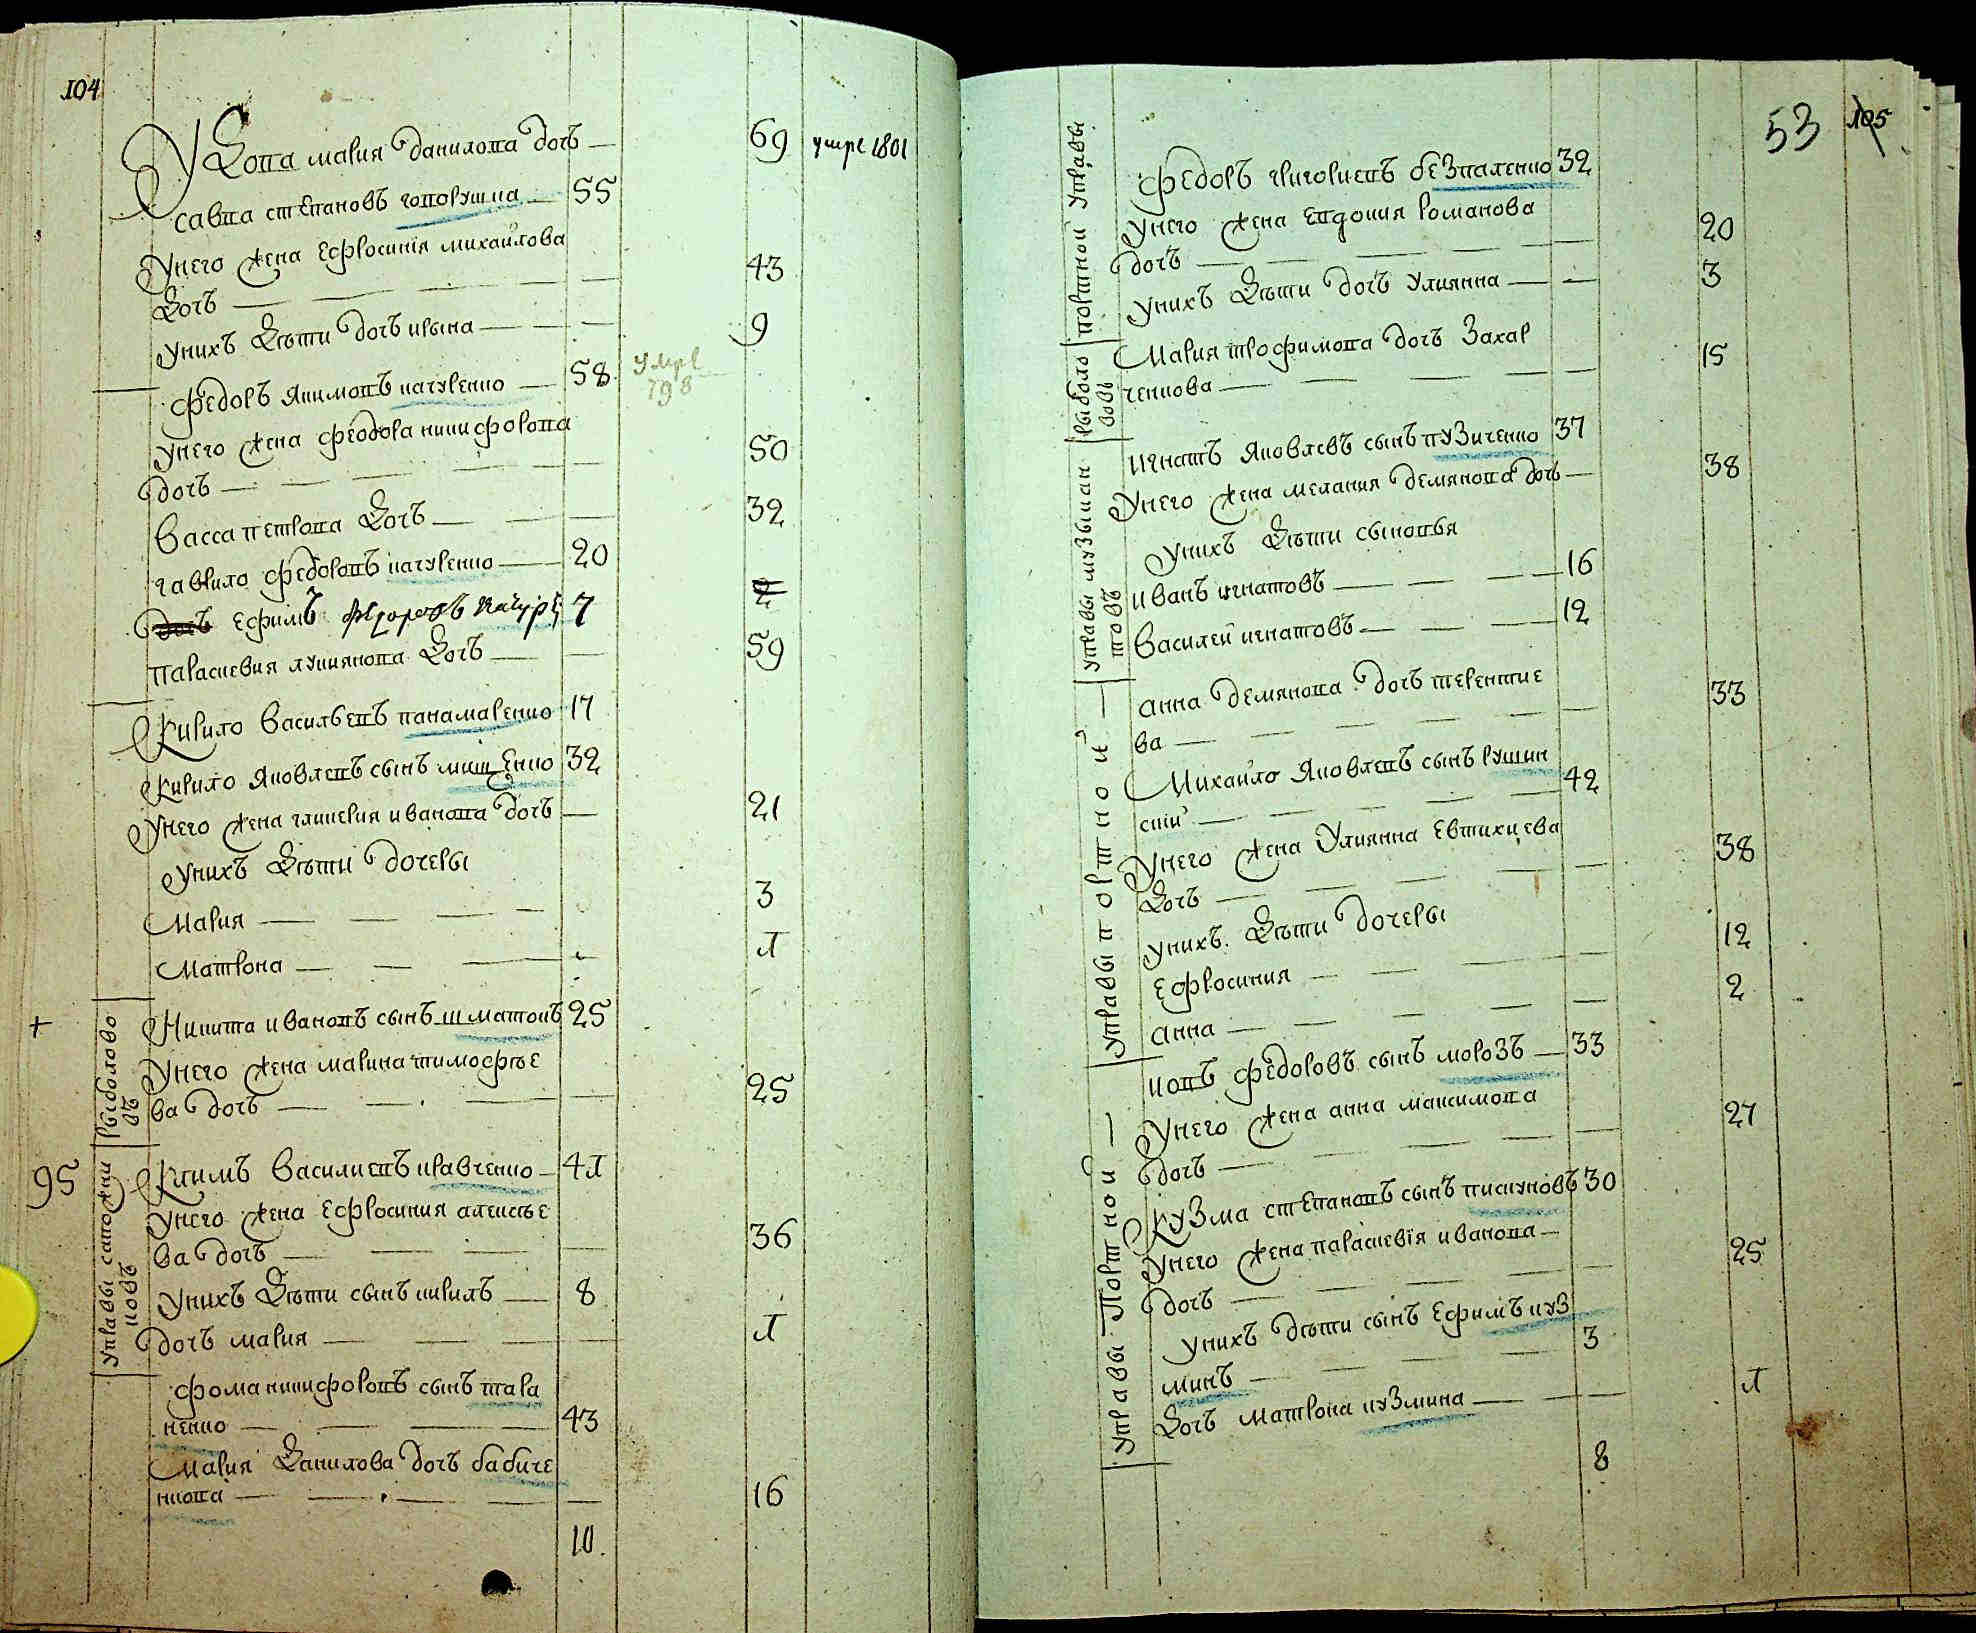 104
Удова мария данилова дочь — 69 умре 1801
савва степановъ говорушка — 55
Унего жена ефросинія михайлова
дочь — 43
Унихъ дѣти дочь ирына — 9
федоръ якимовъ качуренко — 58 умре 798
Унего жена феодора никифорова
дочь — 50
Васса петрова дочь — 32
гаврило федоровъ качуренко — 20
дочь ефимъ федоровъ качур 7 2
параскевия лукиянова дочь — 59
Кирило васильевъ панамаренко 17
Кирило яковлевъ сынъ мищенко 32
Унего жена гликерия иванова дочь — 21
Унихъ дѣти дочеры
Мария — 3
Матрона — 1
+ рыболововъ
Никита ивановъ сынъ шматокъ 25
Унего жена марина тимофѣе
ва дочь — 25
95 управы сапожниковъ
Климъ василиевъ кравченко — 41
Унего жена ефросиния алексѣе
ва дочь — 36
Унихъ дѣти сынъ кирилъ — 8
дочь мария — 1
фома никифоровъ сынъ тара
ненко — 43
Мария данилова дочь бабиче
нкова — 16
10
53 105
управы портной
федоръ григориевъ безпаленко 32
Унего жена евдокия романова
дочь — 20
Унихъ дѣти дочь улиянна — 3
рыболововъ
Мария трофимова дочь захар
ченкова — 15
управы музыкантовъ
Игнатъ яковлевъ сынъ пузиченко 37
Унего жена мелания демянова дочь — 38
Унихъ дѣти сыновья
иванъ игнатовъ — 16
василей игнатовъ — 12
управы портной —
анна демянова дочь терентие
ва — 33
Михайло яковлевъ сынъ рушин
скій — 42
Унего жена Улиянна Евтихиева
дочь — 38
Унихъ дѣти дочеры
Ефросиния — 12
анна — 2
управы Портной —
иовъ федоровъ сынъ морозъ — 33
Унего жена анна максимова
дочь — 27
кузма степановъ сынъ пискуновъ 30
Унего жена параскевія иванова —
дочь — 25
Унихъ дѣти сынъ ефимъ куз
минъ — 3
дочь матрона кузмина — 1
8